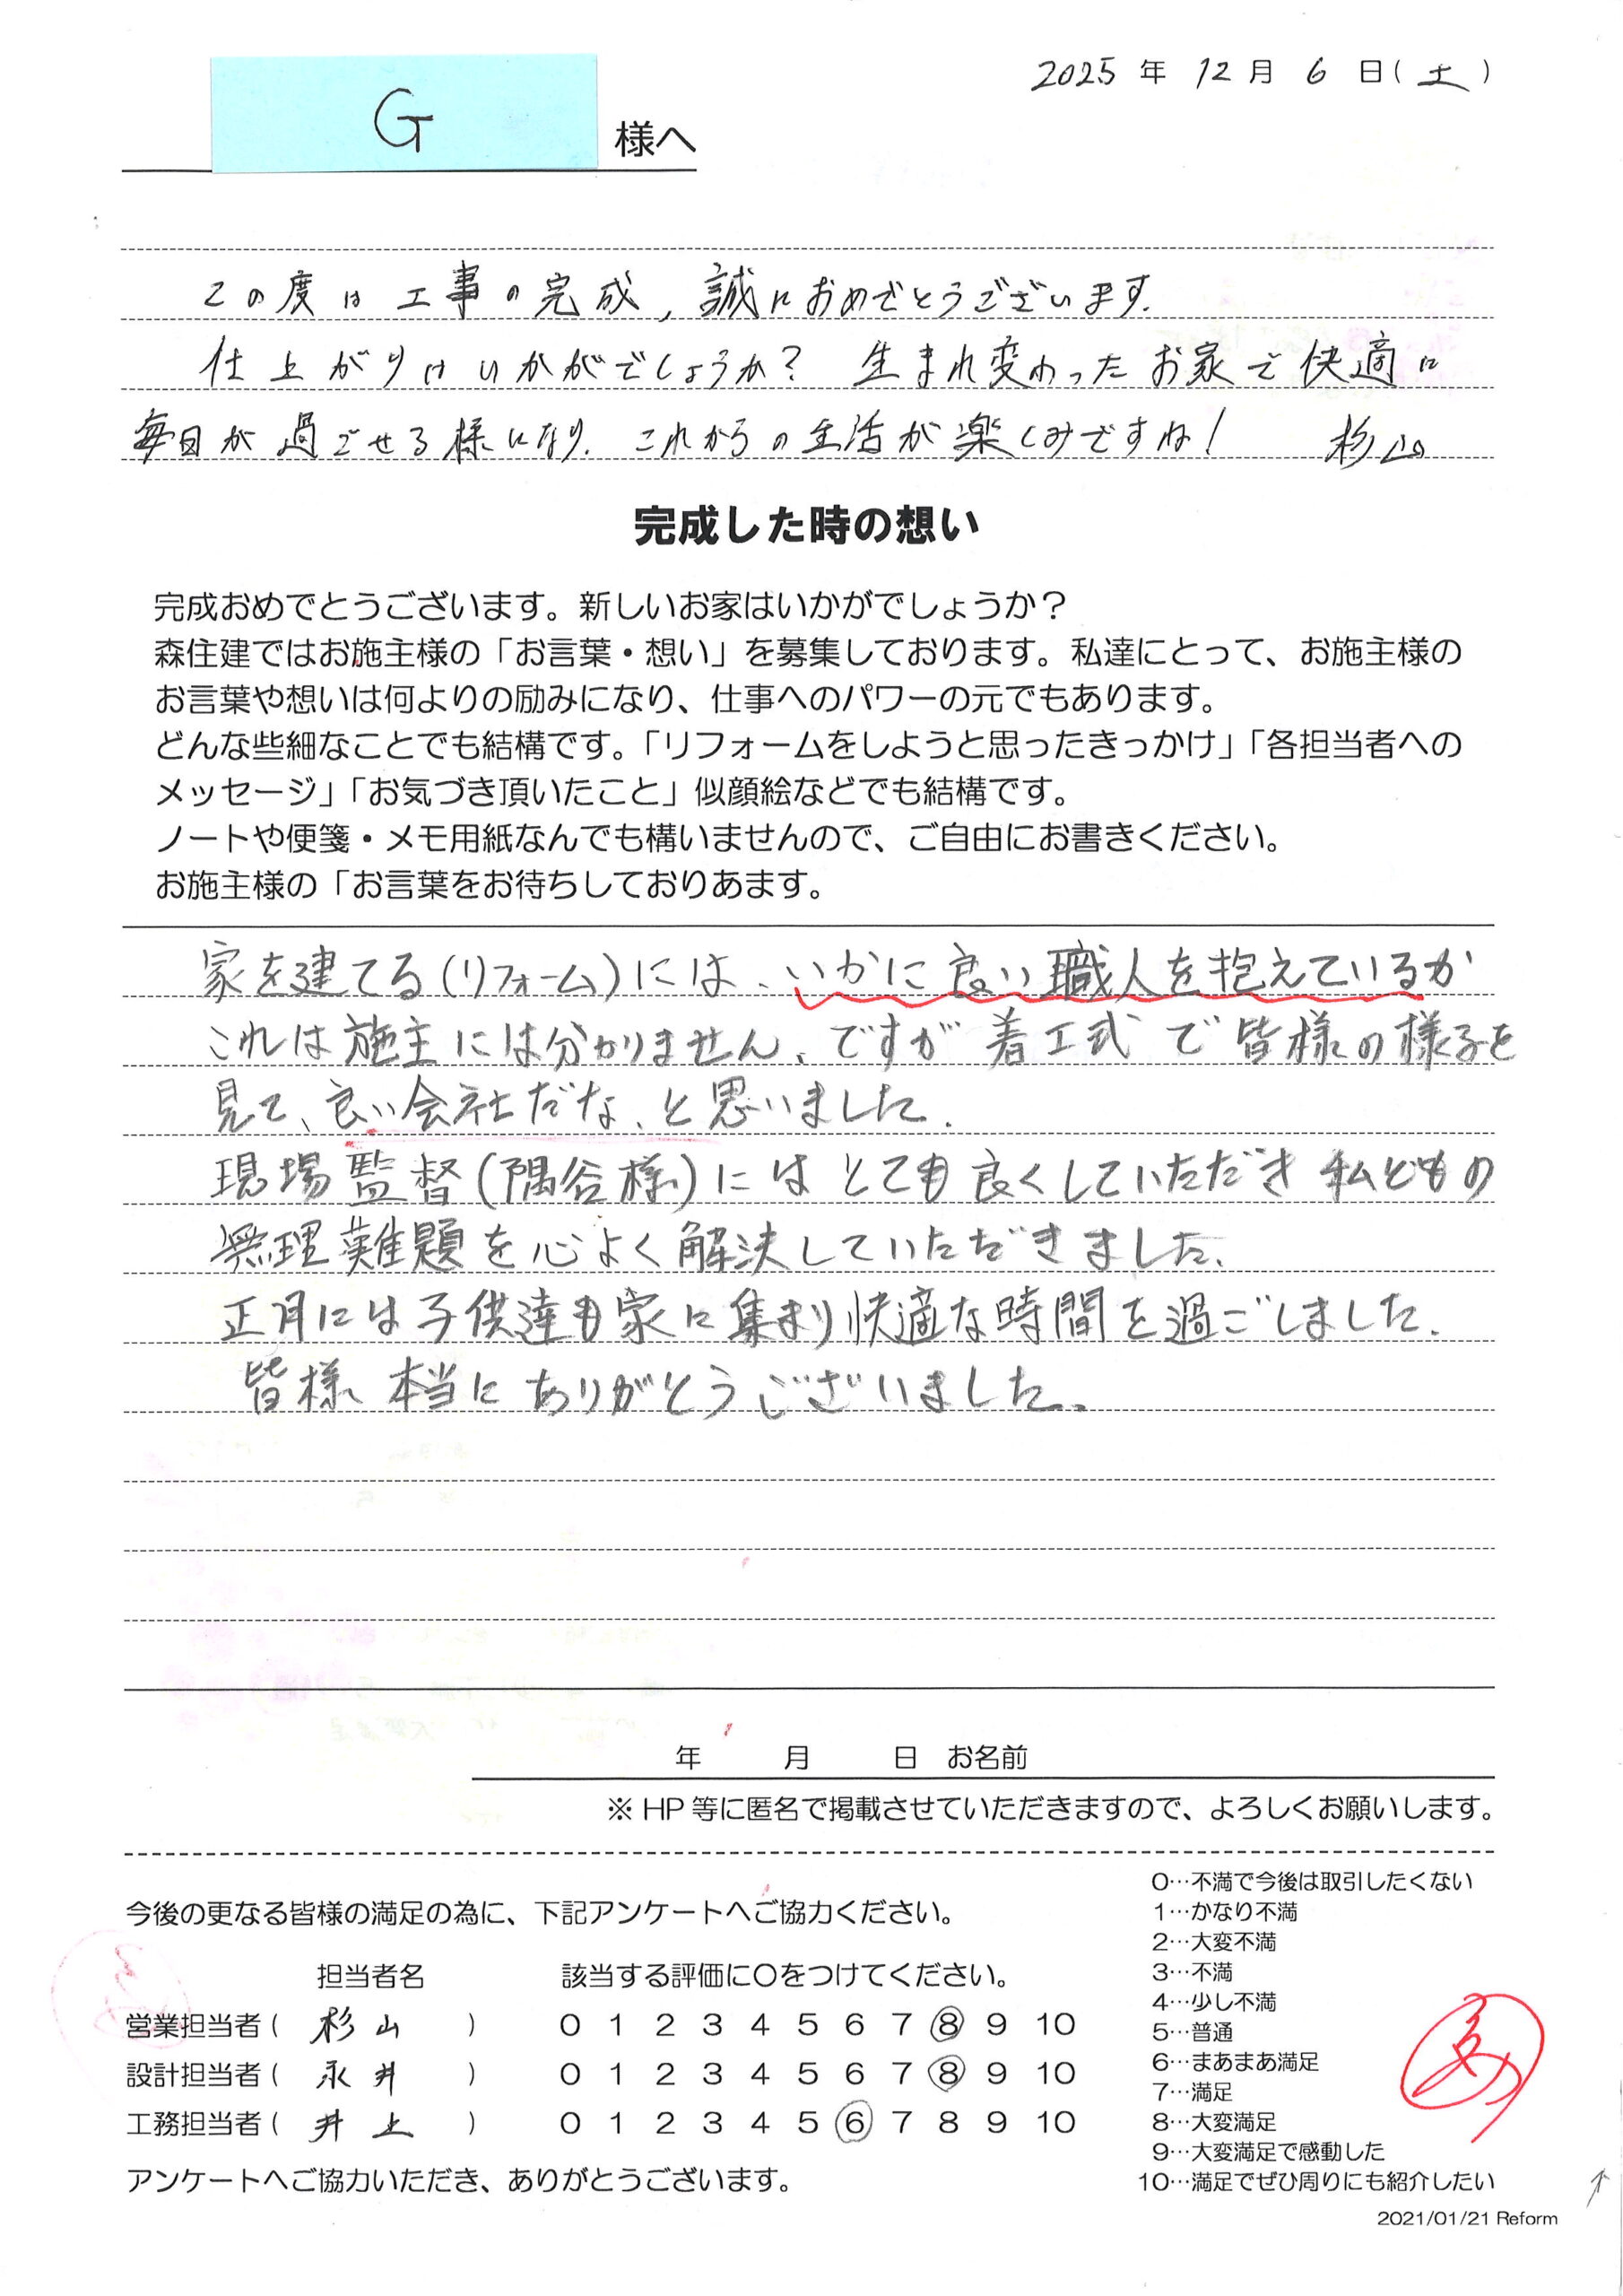 2025 年 12 月 6 日(土)
G 様へ
この度は工事の完成、誠におめでとうございます。
仕上がりはいかがでしょうか? 生まれ変わったお家で快適に
毎日が過ごせる様になり、これからの生活が楽しみですね! 杉山
完成した時の想い
完成おめでとうございます。新しいお家はいかがでしょうか?
森住建ではお施主様の「お言葉・想い」を募集しております。私達にとって、お施主様の
お言葉や想いは何よりの励みになり、仕事へのパワーの元でもあります。
どんな些細なことでも結構です。「リフォームをしようと思ったきっかけ」「各担当者への
メッセージ」「お気づき頂いたこと」似顔絵などでも結構です。
ノートや便箋・メモ用紙なんでも構いませんので、ご自由にお書きください。
お施主様の「お言葉をお待ちしておりあます。
家を建てる(リフォーム)には、いかに良い職人を抱えているか
これは施主には分かりません、ですが着工式で皆様の様子を
見て、良い会社だな、と思いました。
現場監督(隅谷様)にはとても良くしていただき私どもの
無理難題を心よく解決していただきました。
正月には子供達も家に集まり快適な時間を過ごしました。
皆様、本当にありがとうございました。
年 月 日 お名前
※HP等に匿名で掲載させていただきますので、よろしくお願いします。
今後の更なる皆様の満足の為に、下記アンケートへご協力ください。
担当者名 該当する評価に〇をつけてください。
営業担当者( 杉山 ) 0 1 2 3 4 5 6 7 8 9 10
設計担当者( 永井 ) 0 1 2 3 4 5 6 7 8 9 10
工務担当者( 井上 ) 0 1 2 3 4 5 6 7 8 9 10
アンケートへご協力いただき、ありがとうございます。
0…不満で今後は取引したくない
1…かなり不満
2…大変不満
3…不満
4…少し不満
5…普通
6…まあまあ満足
7…満足
8…大変満足
9…大変満足で感動した
10…満足でぜひ周りにも紹介したい
2021/01/21 Reform